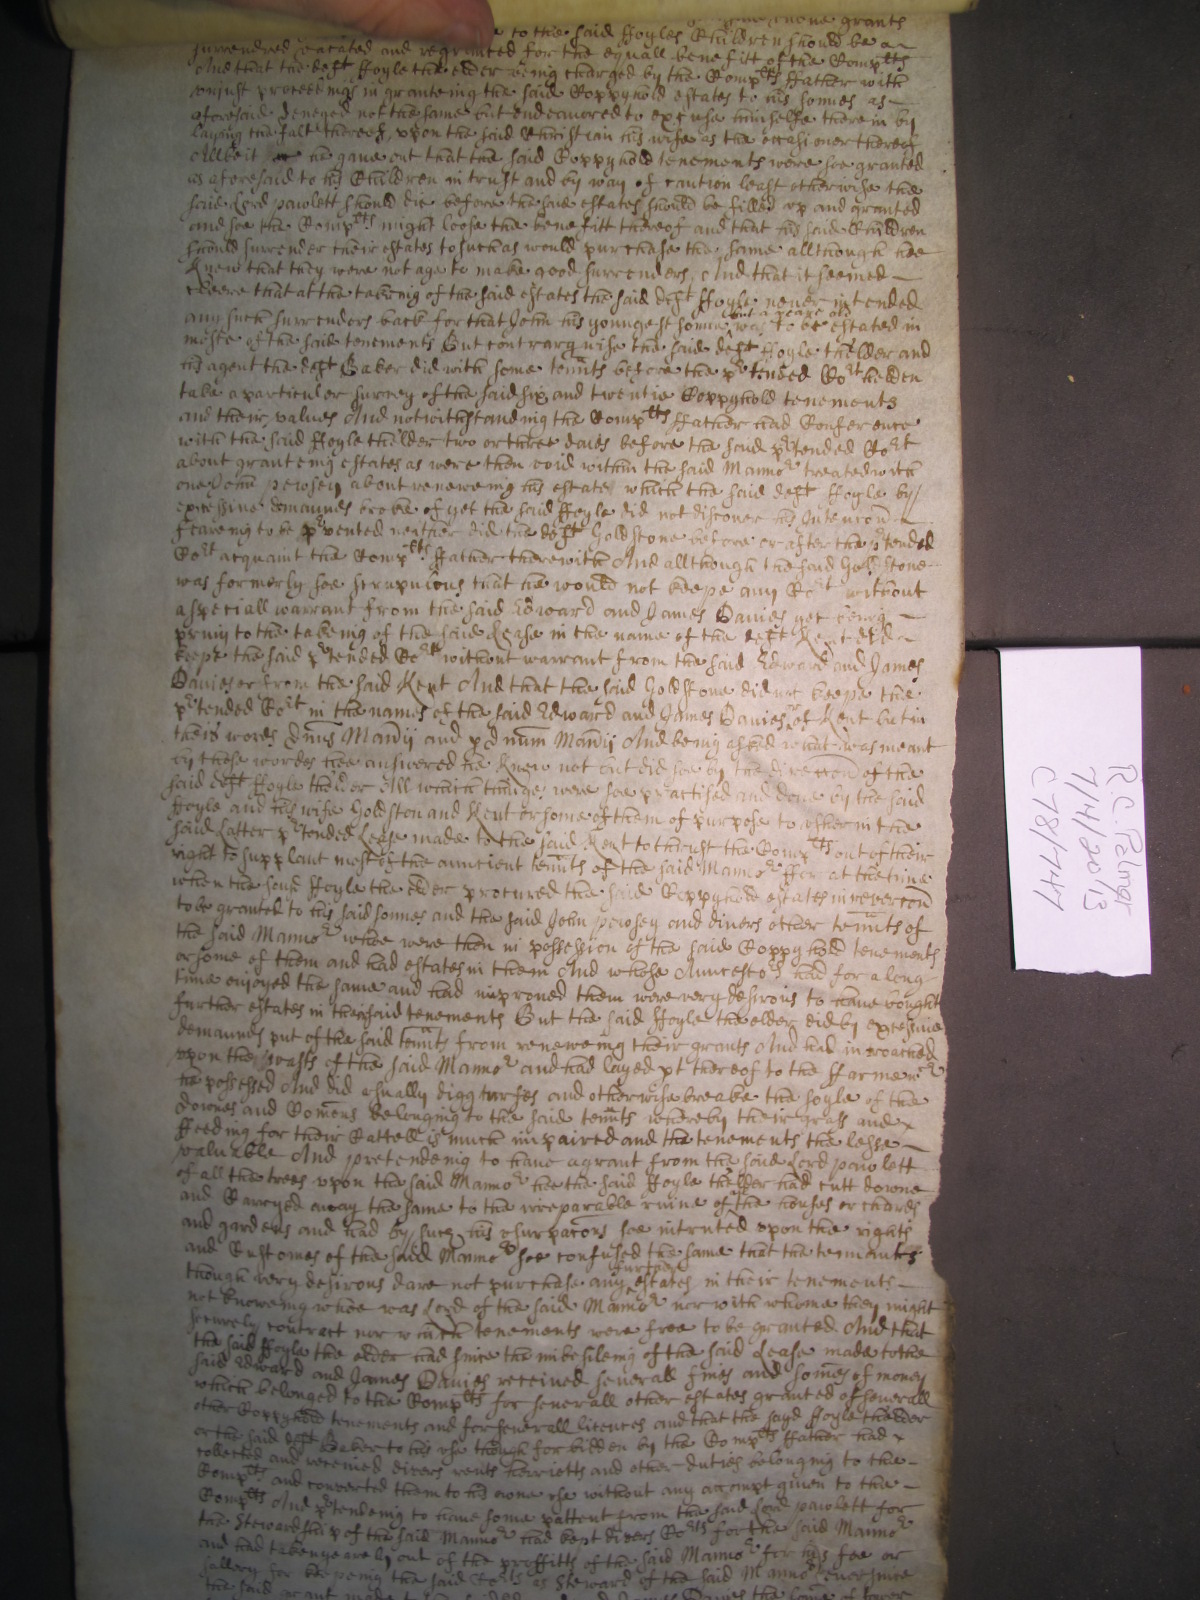 grants
to the said ffoyles Children should be a=
surrendred vacated and regranted for the equall benefitt of the Comp<sup>lts</sup>
And that the deft ffoyle the elder being charged by the Comp<sup>lts</sup> ffather with
uniust proceedings in granteing the said Coppyhold estates to his sonnes as—
aforesaid denyed not the same but endeavored to excuse himselfe therein by
laying the falt thereof upon the said Christian his wife as the occasioner thereof
Albeit he gave out that the said Coppyhold tenements were soe granted
as aforesaid to his Children in trust and by way of caution least otherwise the
said Lord pawlett should die before the said estates should be filled up and granted
and soe the Comp<sup>lts</sup> might loose the benefitt thereof and that his said Children
should surrender their estates to such as would purchase the same allthough hee
knew that they were not age to make good surrenders. And that it seemed—
cleere that at the takeing of the said estates the said deft ffoyle never intended
any such surrenders back for that John his youngest sonne but a yeare old was to be estated in
moste of the said tenements But contrarywise the said deft ffoyle thelder and
his agent the deft Baker did with some tennts before the p<sup>r</sup>tended Co<sup>rt</sup> holden
take a particuler survey of the said six and twentie Coppyhold tenements
and their values And notwithstanding the Comp<sup>lts</sup> ffather had Conference
with the said ffoyle thelder two or three daies before the said p<sup>r</sup>tended Co<sup>rt</sup>
about granteing estates as were then void within the said Manno<sup>r</sup> treated with
one John pewsey about reneweing his estate which the said deft ffoyle by
excessive demaunds broke of yet the said ffoyle did not discover his Intencon—
feareing to be p<sup>r</sup>vented neither did the deft Goldstone before or after the p<sup>r</sup>tended
Co<sup>rt</sup> acquaint the Comp<sup>lts</sup> ffather therewith And allthough the said Goldstone
was formerly soe scrupulous that he would not keepe any Co<sup>rt</sup> without
a speciall warrant from the said Edward and James Davies yet being—
privy to the takeing of the said Lease in the name of the deft Kent did—
keepe the said p<sup>r</sup>tended Co<sup>rt</sup> without warrant from the said Edward and James
Davies or from the said Kent And that the said Goldstone did not keepe the
p<sup>r</sup>tended Co<sup>rt</sup> in the names of the said Edward and James Davies or of Kent but in
theis words Dnus Manij and p dnum Manij And being asked what was meant
by those wordes hee answered he knew not but did soe by the direccon of the
said deft ffoyle thelder All which things were soe practised and done by the said
ffoyle and his wife Goldston and Kent or some of them of purpose to usher in the
said Latter p<sup>r</sup>tended Lease made to the said Kent to thrust the Comp<sup>lts</sup> out of their
right to supplant most of the auncient tennts of the said Manno<sup>r</sup> ffor at the time
when the said ffoyle the elder procured the said Coppyhold estates in revercon
to be granted to his said sonnes and the said John pewsey and divers other tennts of
the said Manno<sup>r</sup> whoe were then in possession of the said Coppyhold tenements
or some of them and had estates in them And whose Auncesto<sup>rs</sup> had for a long
time enjoyed the same and had improved them were very desirous to have bought
further estates in their said tenements But the said ffoyle the elder did by excessive
demaunds put of the said tennts from reneweing their grants And had incroached
upon the wasts of the said Manno<sup>r</sup> and had layed pt thereof to the ffarme w<sup>ch</sup>
he possessed And did usually digg turfes and otherwise breake the soyle of the
downes and Comons belonging to the said tennts whereby their grass and
ffeeding for their Cattell is much impaired and the tenements the lesse—
valuable And pretendeing to have a grant from the said Lord pawlett
of all the trees upon the said Manno<sup>r</sup> hee the said ffoyle thelder had cutt downe
and Carryed away the same to the irreparable ruine of the houses orchards
and gardens and had by such his usurpacons soe intruded upon the rights
and Customes of the said Manno<sup>r</sup> soe confused the same that the tennants
though very desirous dare not purchase any further estates in their tenements—
not knoweing whoe was Lord of the said Manno<sup>r</sup> nor with whome they might
securely contract nor which tenements were free to be granted And that
the said ffoyle the elder had since the making of the said Lease made to the
said Edward and James Davies received severall fines and somes of money
which belonged to the Comp<sup>lts</sup> for severall other estates granted of severall
other Coppyhold tenements and for severall licences and that the sayd ffoyle thelder
or the said deft Baker to his use though forbidden by the Comp<sup>lts</sup> ffather had
collected and received divers rents herriotts and other duties belonging to the—
Comp<sup>lts</sup> and converted them to his owne use without any accompt given to the—
Comp<sup>lts</sup> And p<sup>r</sup>tendeing to have some pattent from the said Lord pawlett for
the Stewardship of the said Manno<sup>r</sup> had kept divers Co<sup>rts</sup> for the said Manno<sup>r</sup>
and had taken yearely out of the proffitts of the said Manno<sup>r</sup> for his fee or
sallery for keepeing the said Co<sup>rts</sup> as Steward of the said Manno<sup>r</sup> ever since
the said grant made to
R.C. Palmer
7/4/2013
C78/747